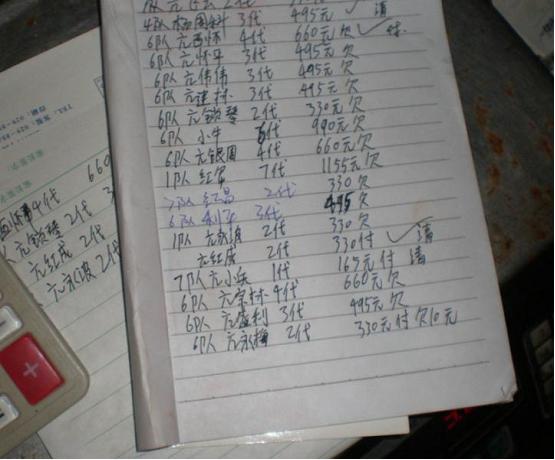 4队 杨周科 3代 495元 清
6队 元西怀 4代 660元欠
6队 元怀平 3代 495元欠
6队 元伟伟 3代 495元欠
6队 元建林 3代 495元欠
6队 元锁琴 2代 330元欠
6队 小牛 6代 990元欠
6队 元银周 4代 660元欠
1队 红军 7代 1155元欠
7队 红昌 2代 330欠
6队 利平 3代 495欠
1队 2代 330欠
元红成 2代 330付 清
7队 元小兵 1代 165元付 清
6队 元 林 4代 660元欠
6队 元盛利 3代 495元欠
6队 元 2代 330元付欠10元
4代 660
元锁琴 2代
元红成 2代
元 2代
+